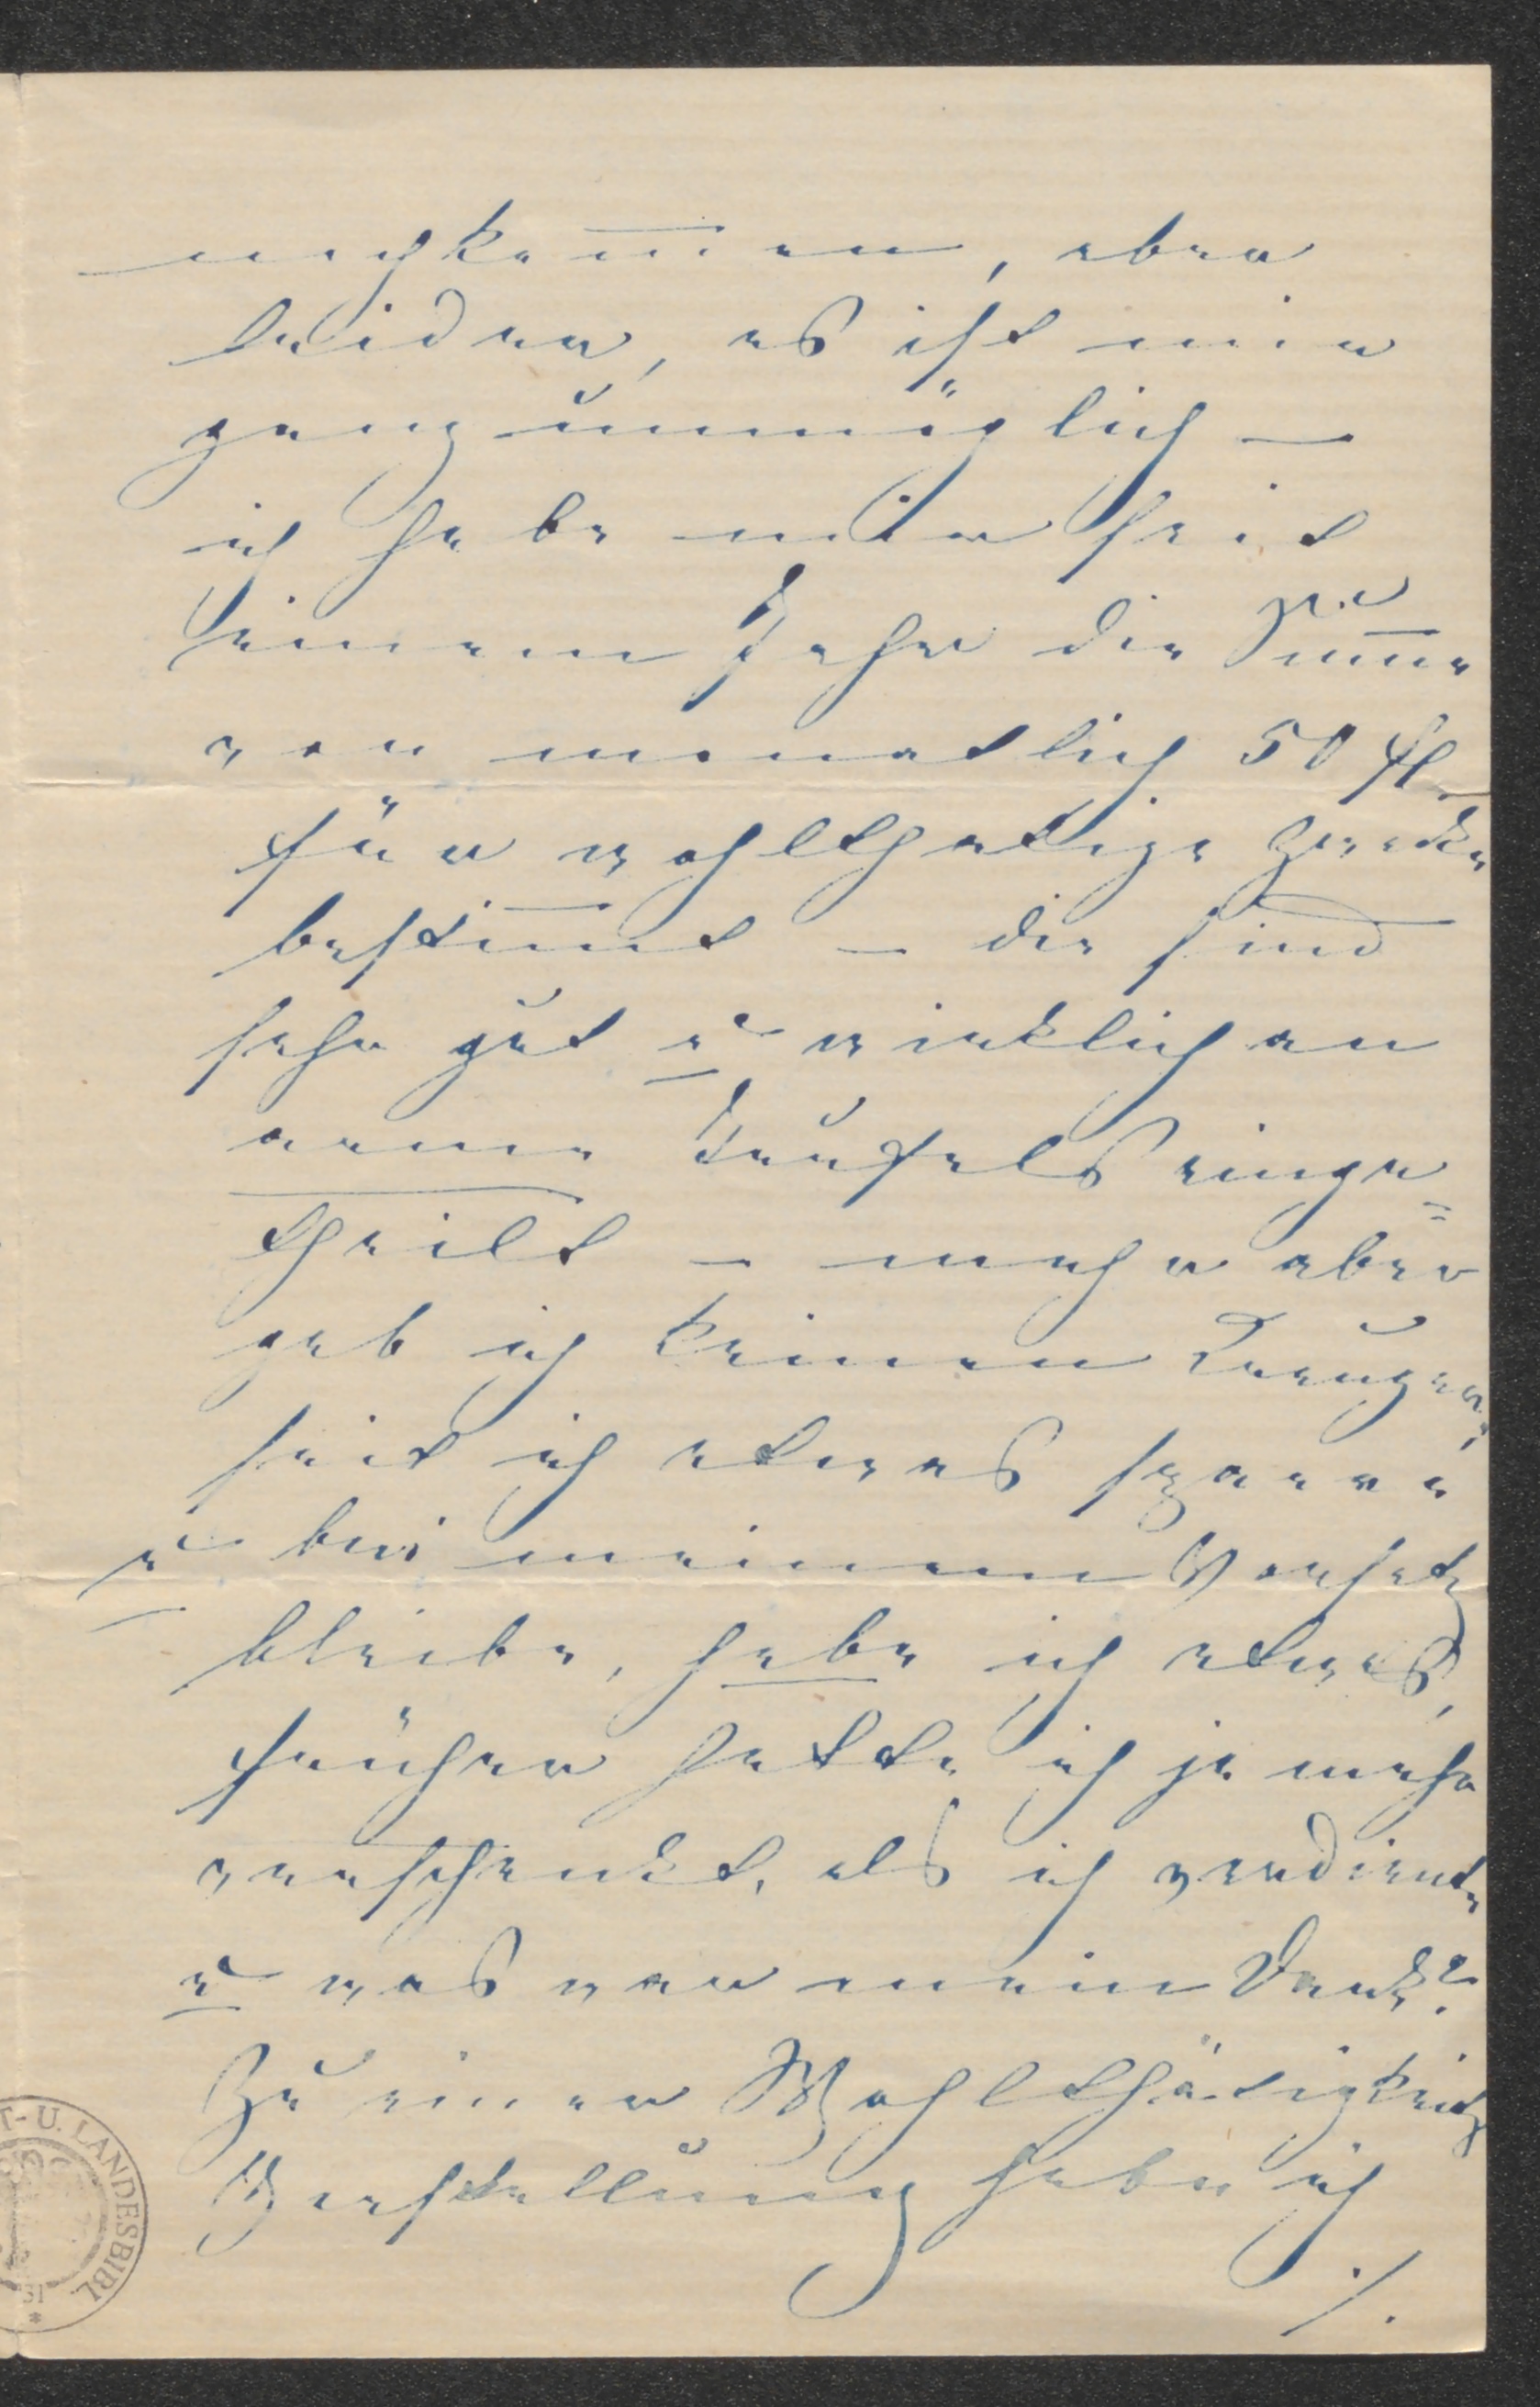 nachkom̅en, aber
leider, es ist mir
ganz unmöglich –
ich habe mir seit
einem Jahr die Sum̅e
von monatlich 50 fl.
für wohlthätige Zwecke
bestim̅t – die sind
sehr gut u wirklich an
arme Teufels einge=
theilt – mehr aber
geb ich keinen Kreuzer;
seit ich etwas spare
u bei meinem Vorsatz
bleibe, habe ich etwas,
früher hatte ich ja mehr
verschenkt, als ich verdiente
u was war mein Dank?
Zu einer Wohlthätigkeits
Vorstellung habe ich
./.
T- U. LANDESBIBL